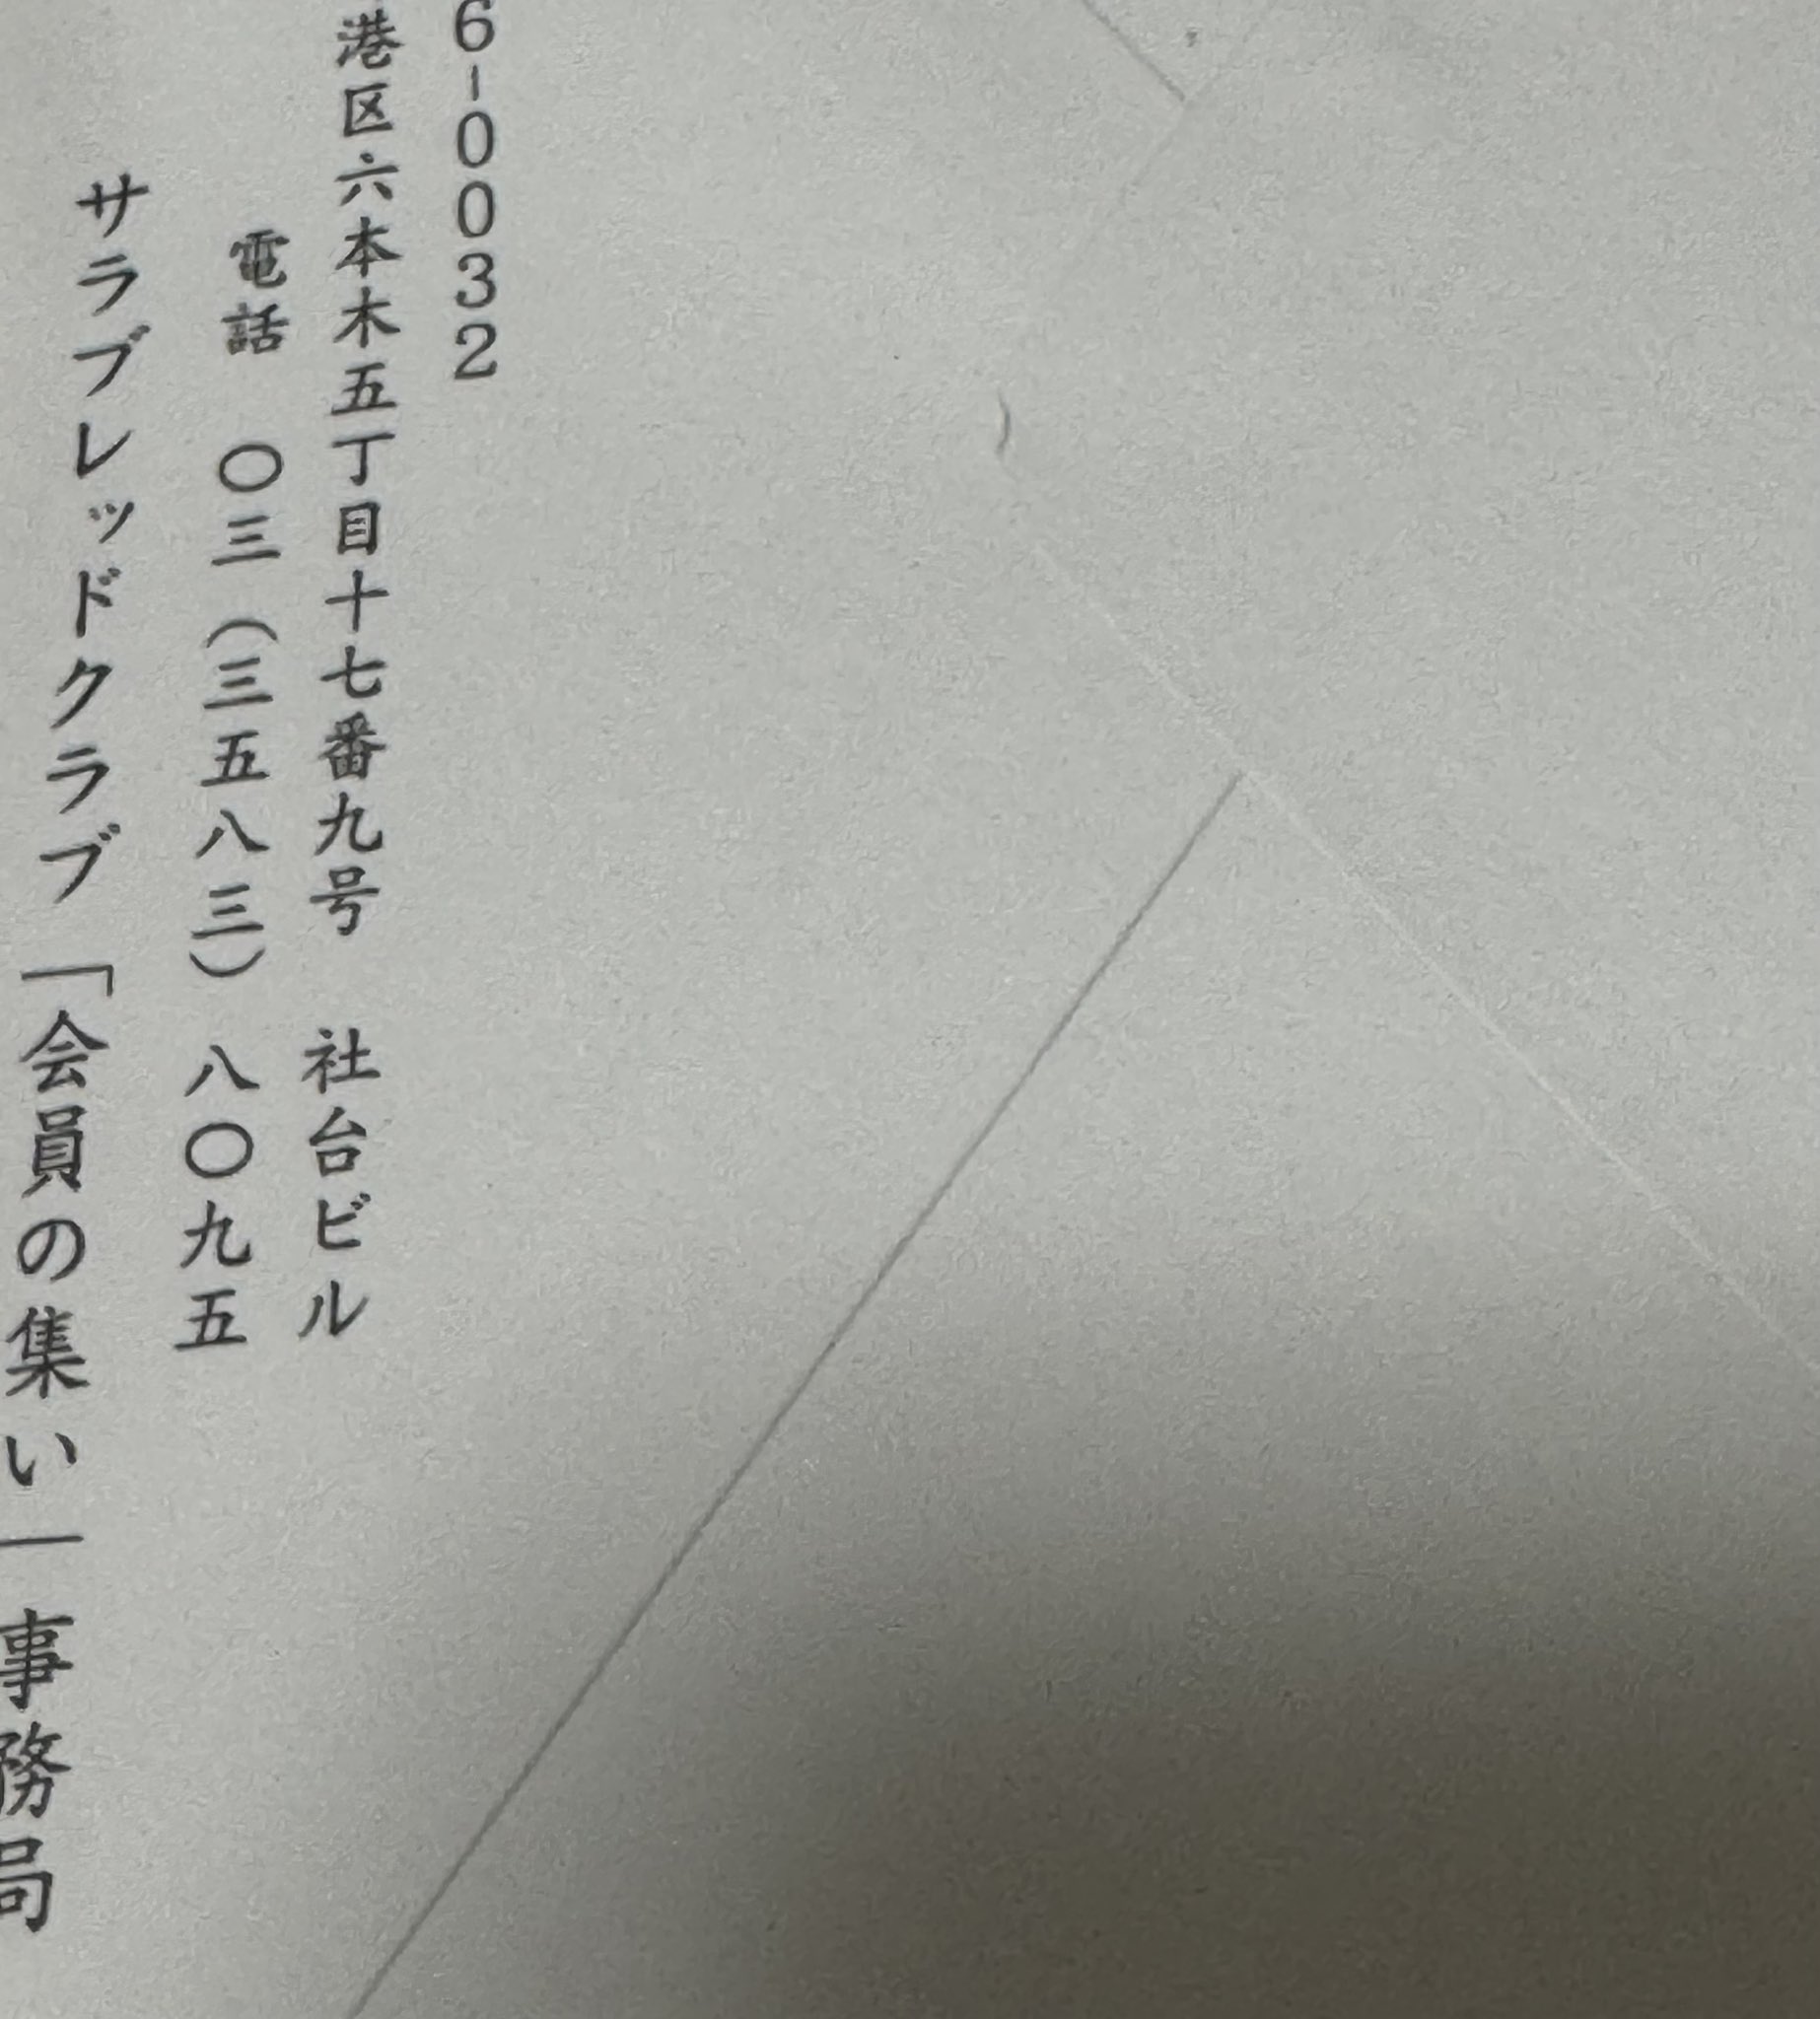 6-0032
港区六本木五丁目十七番九号 社台ビル
電話 〇三(三五八三)八〇九五
サラブレッドクラブ「会員の集い」事務局